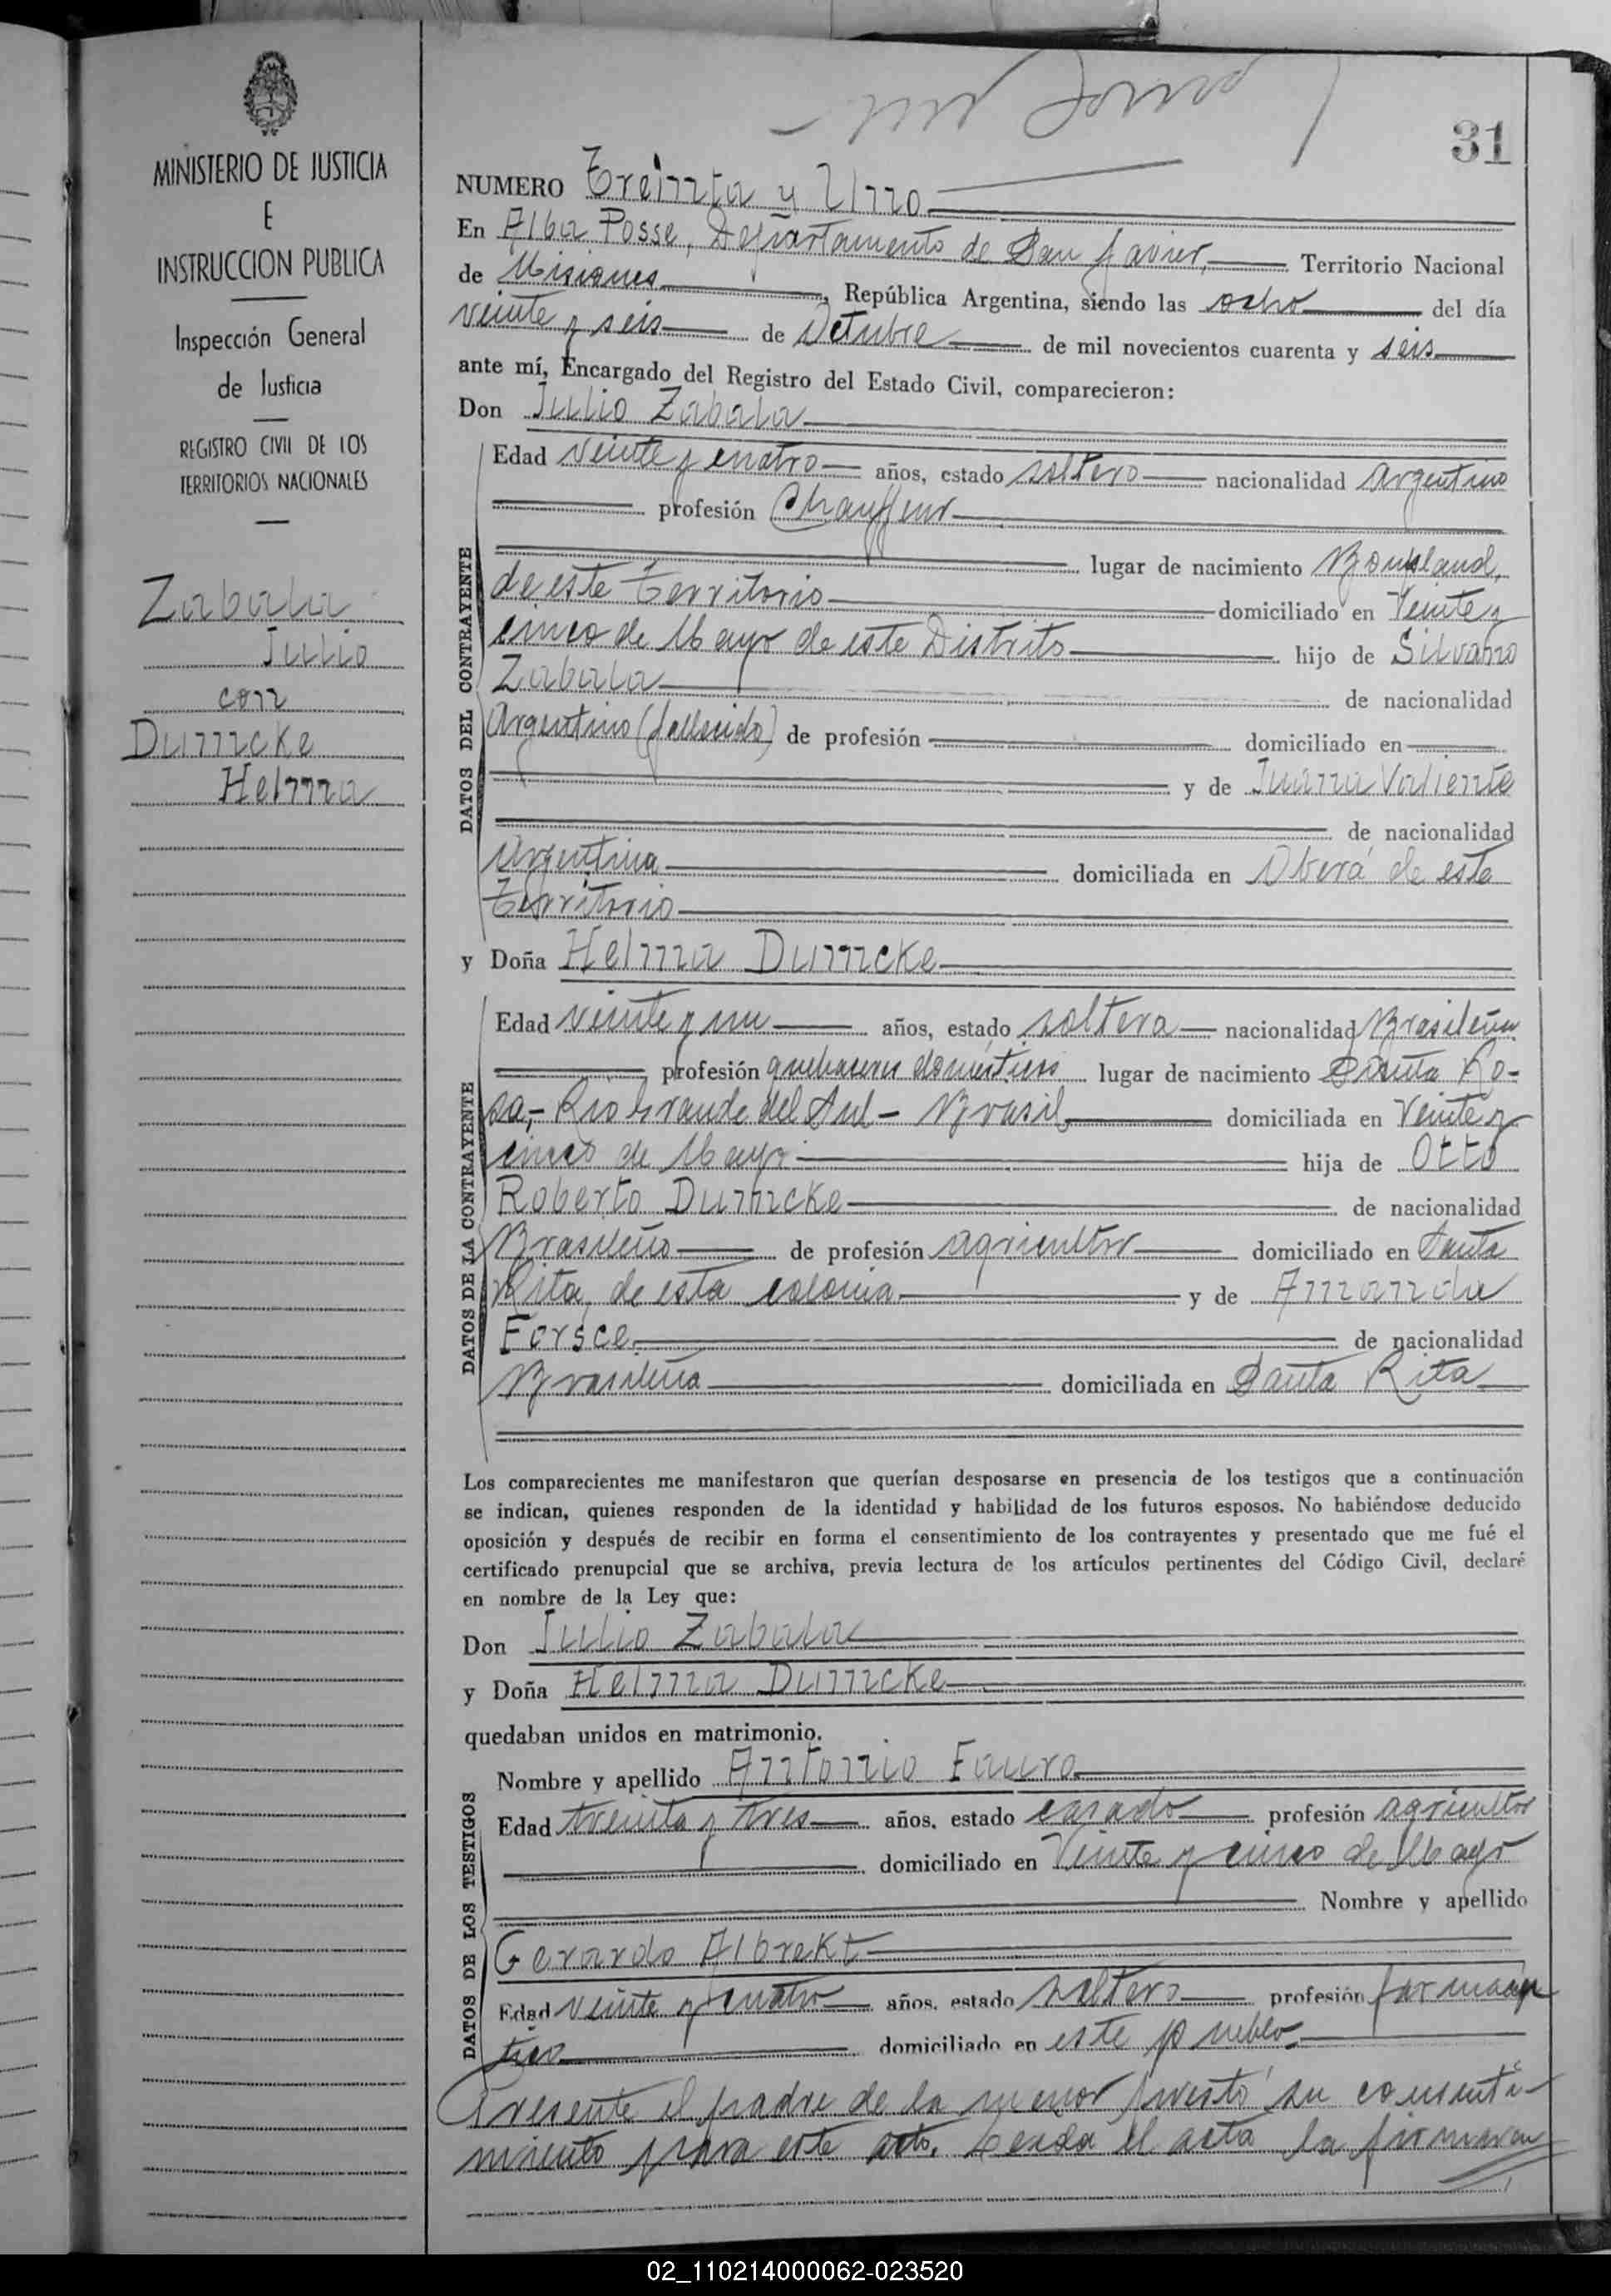 31
MINISTERIO DE JUSTICIA
E
INSTRUCCION PUBLICA
Inspección General
de Justicia
REGISTRO CIVIL DE LOS
TERRITORIOS NACIONALES
Zabala
Julio
con
Dumcke
Helma
NUMERO Treinta y Uno
En Alba Posse, Departamento de San Javier, Territorio Nacional
de Misiones, República Argentina, siendo las ocho del día
veinte y seis de Octubre de mil novecientos cuarenta y seis
ante mí, Encargado del Registro del Estado Civil, comparecieron:
Don Julio Zabala
DATOS DEL CONTRAYENTE
Edad veinte y cuatro años, estado soltero nacionalidad Argentino
profesión Chauffeur
lugar de nacimiento Bonpland,
de este territorio domiciliado en Veinte y
cinco de Mayo de este Distrito hijo de Silvano
Zabala de nacionalidad
Argentino (fallecido) de profesión domiciliado en
y de Juana Valiente
de nacionalidad
Argentina domiciliada en Oberá de este
Territorio
y Doña Helma Dumcke
DATOS DE LA CONTRAYENTE
Edad veinte y un años, estado soltera nacionalidad Brasileña
profesión quehaceres domésticos lugar de nacimiento Santa Ro-
sa,- Rio Grande del Sul - Brasil domiciliada en Veinte y
cinco de Mayo hija de Otto
Roberto Dumcke de nacionalidad
Brasileño de profesión agricultor domiciliado en Santa
Rita, de esta colonia y de Amanda
Forsce de nacionalidad
Brasileña domiciliada en Santa Rita
Los comparecientes me manifestaron que querían desposarse en presencia de los testigos que a continuación
se indican, quienes responden de la identidad y habilidad de los futuros esposos. No habiéndose deducido
oposición y después de recibir en forma el consentimiento de los contrayentes y presentado que me fué el
certificado prenupcial que se archiva, previa lectura de los artículos pertinentes del Código Civil, declaré
en nombre de la Ley que:
Don Julio Zabala
y Doña Helma Dumcke
quedaban unidos en matrimonio.
DATOS DE LOS TESTIGOS
Nombre y apellido Antonio Faura
Edad treinta y tres años, estado casado profesión agricultor
domiciliado en Veinte y cinco de Mayo
Nombre y apellido
Gerardo Albrekt
Edad veinte y cuatro años, estado soltero profesión farmacéu
tico domiciliado en este pueblo.
Presente el padre de la menor prestó su consenti-
miento para este acto. Leida el acta la firmaron
02_110214000062-023520